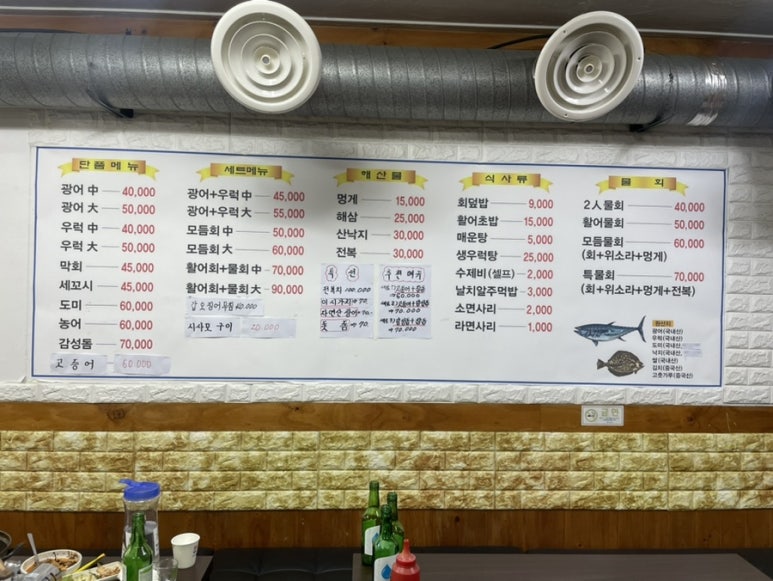 단품메뉴
광어 中 40,000
광어 大 50,000
우럭 中 40,000
우럭 大 50,000
막회 45,000
세꼬시 45,000
도미 60,000
농어 60,000
감성돔 70,000
고등어 60,000
세트메뉴
광어+우럭 中 45,000
광어+우럭 大 55,000
모듬회 中 50,000
모듬회 大 60,000
활어회+물회 中 70,000
활어회+물회 大 90,000
갑오징어무침 40,000
시사모 구이 20,000
해산물
멍게 15,000
해삼 25,000
산낙지 30,000
전복 30,000
특선
전복치 100,000
이시가리 70,
자연산 광어 70,
돗돔 70,
주변메뉴
60,000
70,000
70,000
식사류
회덮밥 9,000
활어초밥 15,000
매운탕 5,000
생우럭탕 25,000
수제비(셀프) 2,000
날치알주먹밥 3,000
소면사리 2,000
라면사리 1,000
물회
2人물회 40,000
활어물회 50,000
모듬물회 60,000
(회+위소라+멍게)
특물회 70,000
(회+위소라+멍게+전복)
원산지
광어(국내산)
우럭(국내산)
도미(국내산)
낙지(국내산,
쌀(국내산)
김치(중국산)
고춧가루(중국산)
금연